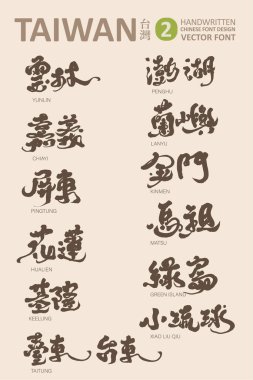 TAIWAN 台灣 2 HANDWRITTEN
CHINESE FONT DESIGN
VECTOR FONT
雲林
YUNLIN
嘉義
CHIAYI
屏東
PINGTUNG
花蓮
HUALIEN
基隆
KEELUNG
臺東 台東
TAITUNG
澎湖
PENGHU
蘭嶼
LANYU
金門
KINMEN
馬祖
MATSU
綠島
GREEN ISLAND
小琉球
XIAO LIU QIU